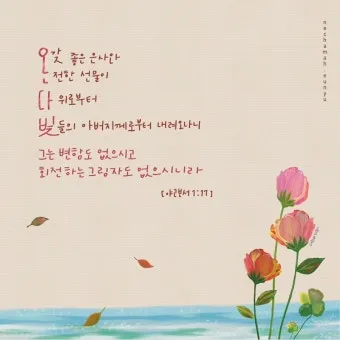 온갖 좋은 은사와
온전한 선물이
다 위로부터
빛들의 아버지께로부터 내려오나니
그는 변함도 없으시고
회전하는 그림자도 없으시니라
[야고보서 1:17]
nechamah eunyu